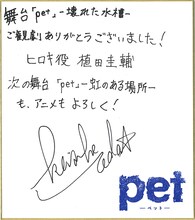 舞台「pet」-壊れた水槽-
ご観劇ありがとうございました!
ヒロキ役 植田圭輔
次の舞台「pet」-虹のある場所-
も、アニメもよろしく!
pet
-ペット-